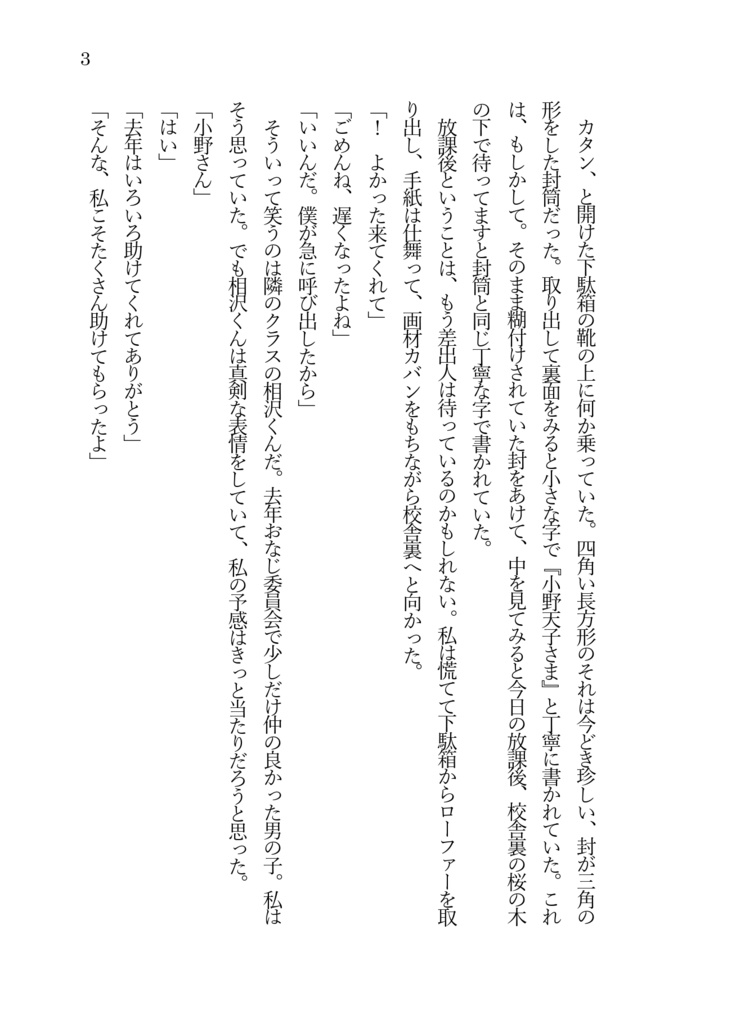 3
カタン、と開けた下駄箱の靴の上に何か乗っていた。四角い長方形のそれは今どき珍しい、封が三角の
形をした封筒だった。取り出して裏面をみると小さな字で『小野天子さま』と丁寧に書かれていた。これ
は、もしかして。そのまま糊付けされていた封をあけて、中を見てみると今日の放課後、校舎裏の桜の木
の下で待ってますと封筒と同じ丁寧な字で書かれていた。
放課後ということは、もう差出人は待っているのかもしれない。私は慌てて下駄箱からローファーを取
り出し、手紙は仕舞って、画材カバンをもちながら校舎裏へと向かった。
「！　よかった来てくれて」
「ごめんね、遅くなったよね」
「いいんだ。僕が急に呼び出したから」
そういって笑うのは隣のクラスの相沢くんだ。去年おなじ委員会で少しだけ仲の良かった男の子。私は
そう思っていた。でも相沢くんは真剣な表情をしていて、私の予感はきっと当たりだろうと思った。
「小野さん」
「はい」
「去年はいろいろ助けてくれてありがとう」
「そんな、私こそたくさん助けてもらったよ」